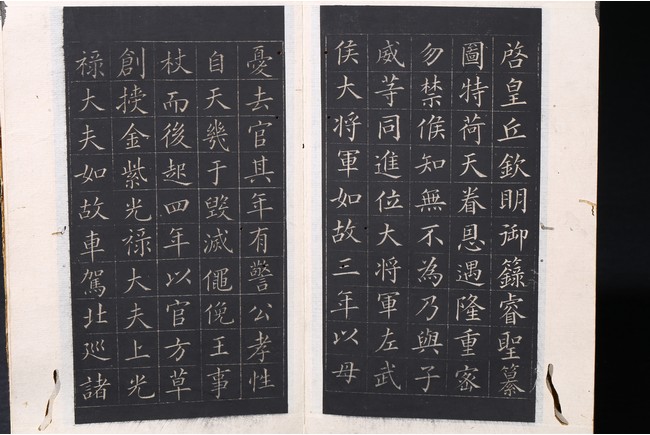 啓皇丘欽明御籙睿聖纂
圖特荷天眷恩遇隆重宻
勿禁候知無不為乃與子
威等同進位大將軍左武
侯大将軍如故三年以母
憂去官其年有警公孝性
自天幾于毀滅僶俛王事
杖而後起四年以官方草
創授金紫光禄大夫上光
禄大夫如故車駕北巡諸